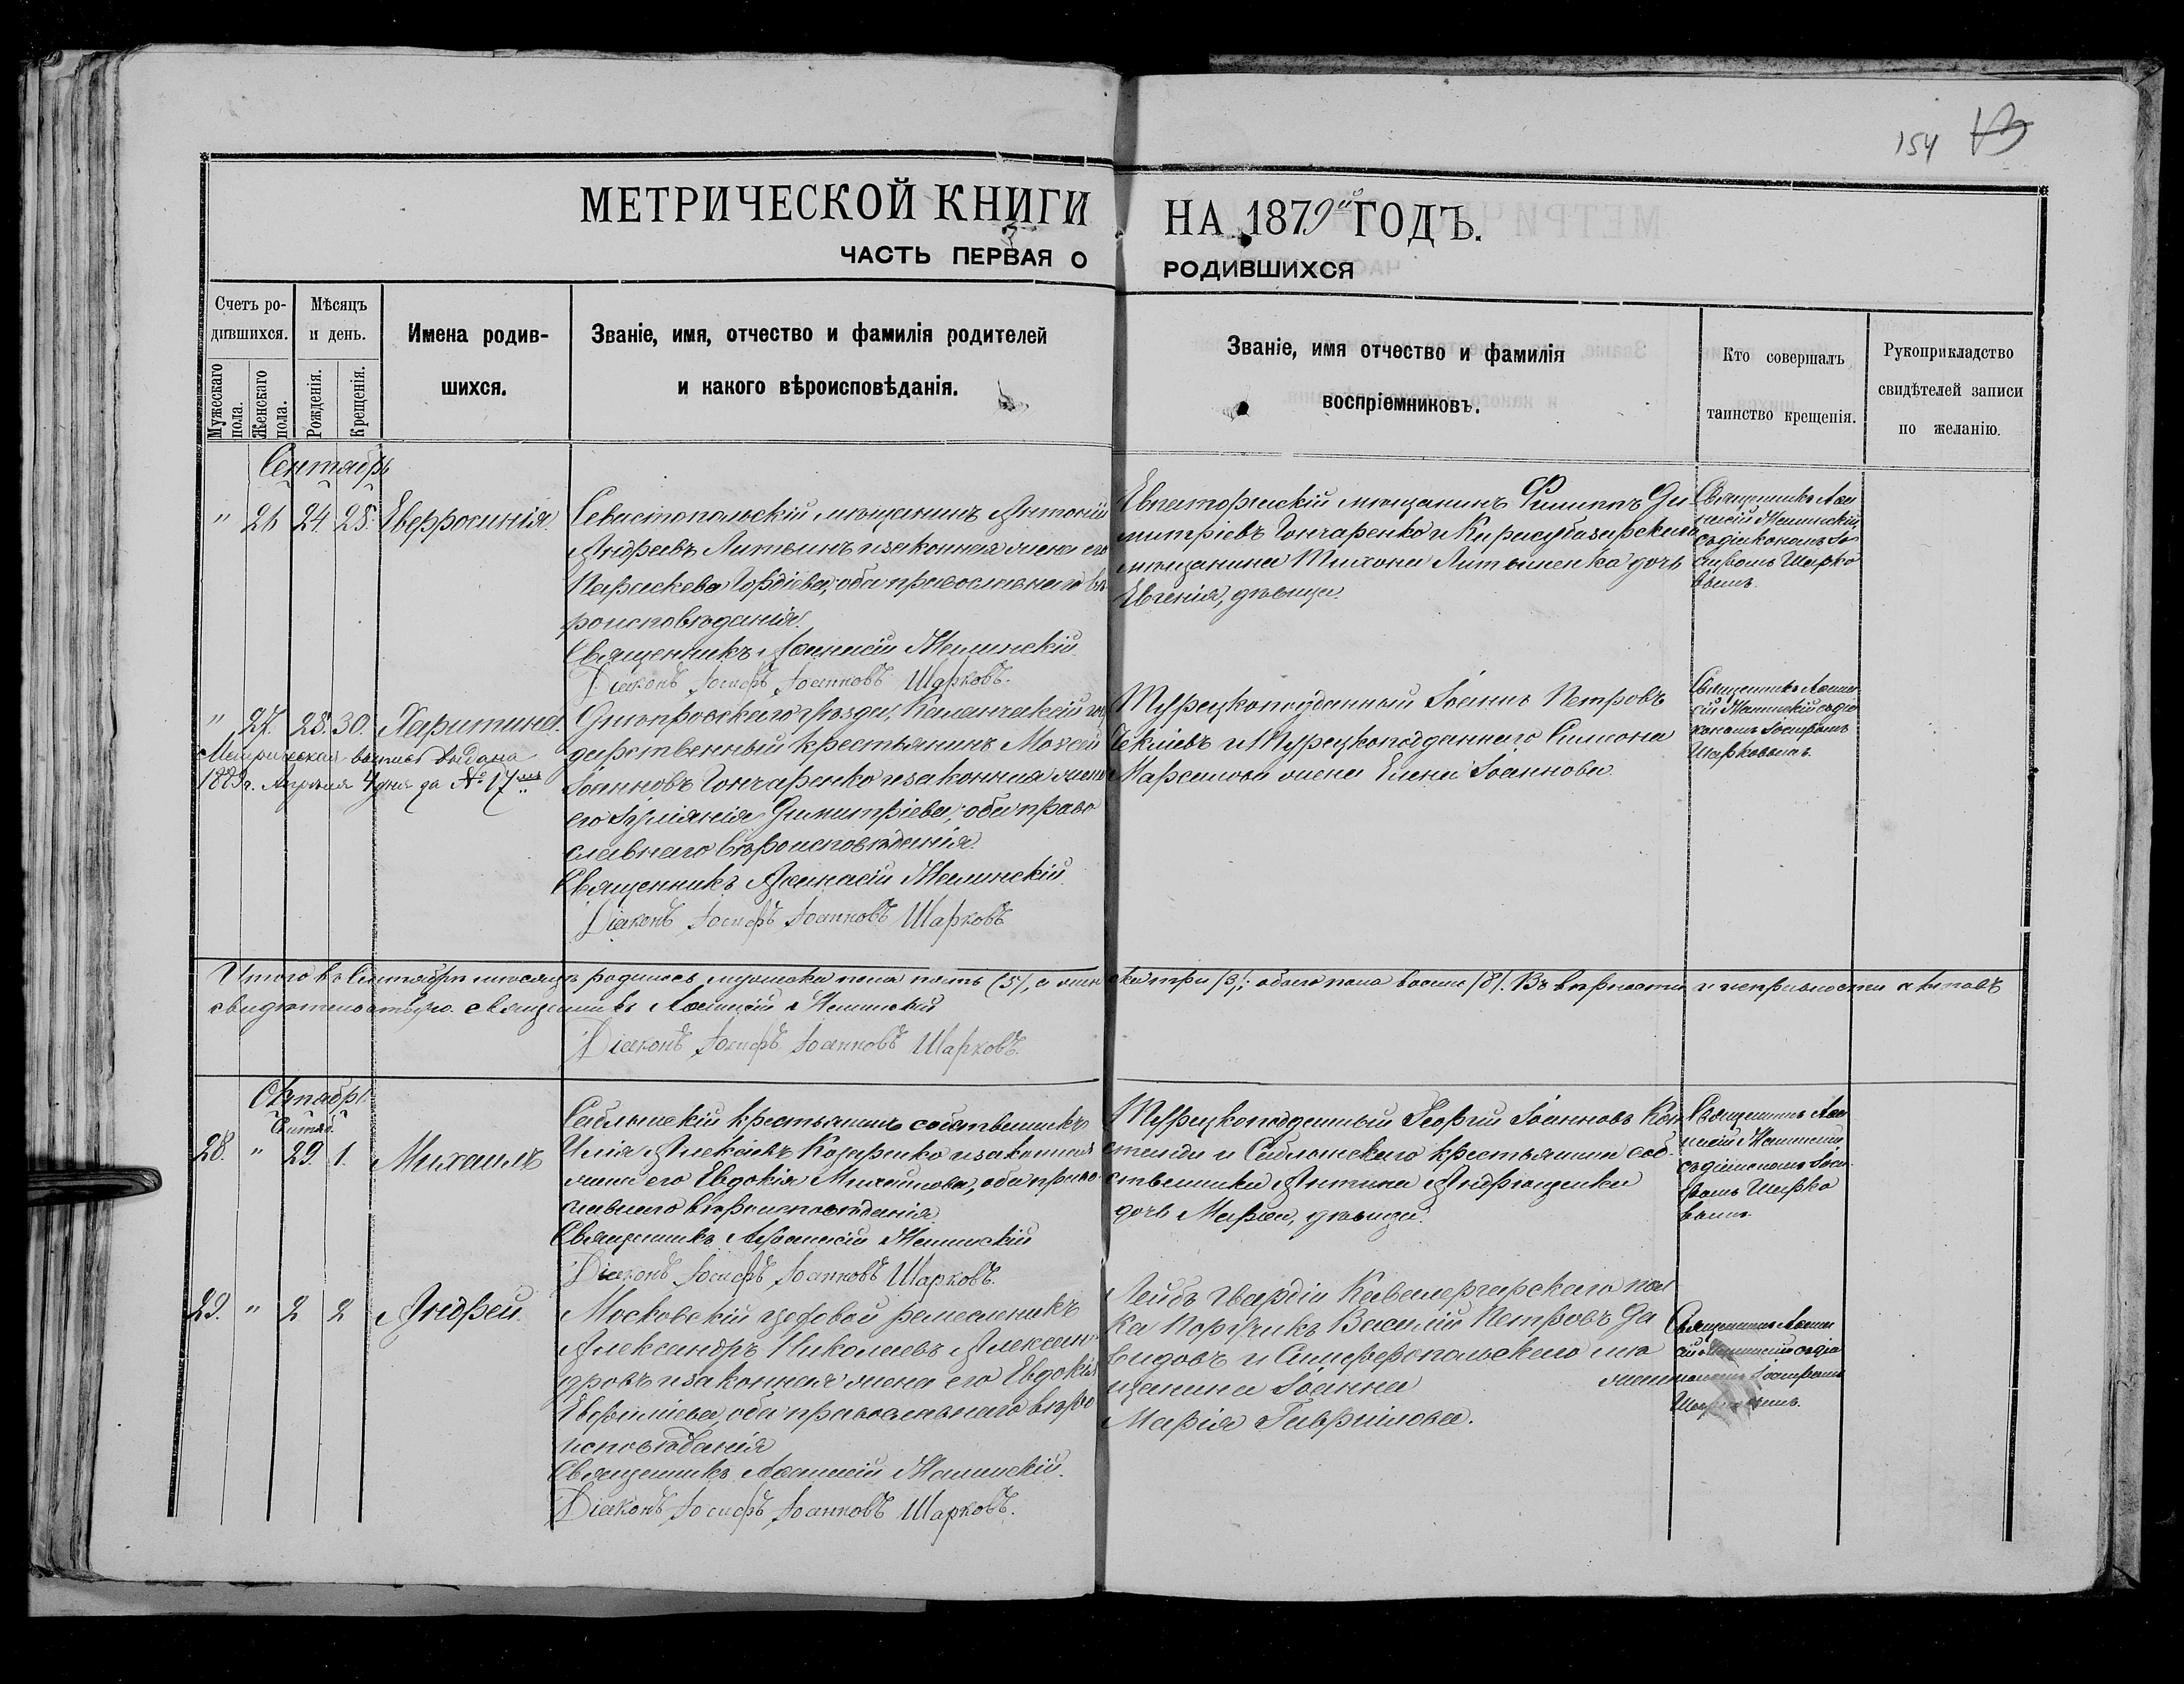 154
МЕТРИЧЕСКОЙ КНИГИ НА 1879й ГОДЪ.
ЧАСТЬ ПЕРВАЯ О РОДИВШИХСЯ
Счетъ ро-
дившихся.
Мужескаго пола.
Женскаго пола.
Мѣсяцъ
и день.
Рожденія.
Крещенія.
Имена родив-
шихся.
Званіе, имя, отчество и фамилія родителей
и какого вѣроисповѣданія.
Званіе, имя отчество и фамилія
воспріемниковъ.
Кто совершалъ
таинство крещенія.
Рукоприкладство
свидѣтелей записи
по желанію.
Сентябрь
" 26 24 28. Евфросинія.
Севастопольскій мѣщанинъ Антоній
Андреевъ Литвинъ и законная жена его
Параскева Гордіева, оба православнаго вѣ-
роисповѣданія.
Священникъ Аѳанасій
Діаконъ Іосифъ Іоанновъ Шарковъ.
Евпаторійскій мѣщанинъ Филиппъ Ди-
митріевъ Гончаренко и Карасубазарскаго
мѣщанина Тихона Литвиненка дочь
Евгенія, дѣвица.
Священникъ Аѳа
насій
съ діакономъ Іо
сифомъ Шарко
вымъ.
" 27. 28. 30. Харитина.
Метрическая выпись выдана
1889 г. Апрѣля 4 дня за № 17мъ
Днѣпровскаго уѣзда, Каланчакскій госу
дарственный крестьянинъ Моисей
Іоанновъ Гончаренко и законная жена
его Іуліанія Димитріева, оба право
славнаго вѣроисповѣданія.
Священникъ Аѳанасій
Діаконъ Іосифъ Іоанновъ Шарковъ
Турецкоподданный Іоаннъ Петровъ
и Турецкоподданнаго Симона
жена Елена Іоаннова.
Священникъ Аѳана
сій съ діа
кономъ Іосифомъ
Шарковымъ.
Итого въ Сентябрѣ мѣсяцѣ родилось мужеска пола пять (5), а жен ска три (3), обоего пола восемь (8). Въ вѣрности и исправности актовъ
свидѣтельствую. Священникъ Аѳанасій
Діаконъ Іосифъ Іоанновъ Шарковъ.
Октябрь
Сентяб.
28. " 29. 1. Михаилъ
Саблынскій крестьянинъ собственникъ
Илія Алексѣевъ Козаренко и законная
жена его Евдокія Михайлова, оба право-
славнаго вѣроисповѣданія.
Священникъ Аѳанасій
Діаконъ Іосифъ Іоанновъ Шарковъ.
Турецкоподданный Георгій Іоанновъ Кон
и Саблынскаго крестьянина соб-
ственника Антипа Андрющенка
дочь Марѳа, дѣвица.
Священникъ Аѳа
насій
съ діакономъ Іоси-
фомъ Шарко
вымъ.
29. " 2 2 Андрей.
Московскій цеховой ремесленникъ
Александръ Николаевъ Александ
ровъ и законная жена его Евдокія
Евфиміева, оба православнаго вѣро
исповѣданія
Священникъ Аѳанасій
Діаконъ Іосифъ Іоанновъ Шарковъ.
Лейбъ Гвардіи Кавалергарскаго пол
ка Поручикъ Василій Петровъ Да
видовъ и Симферопольскаго мѣ
щанина Іоанна жена
Марія Гавріилова.
Священникъ Аѳана
сій съ діа
кономъ Іосифомъ